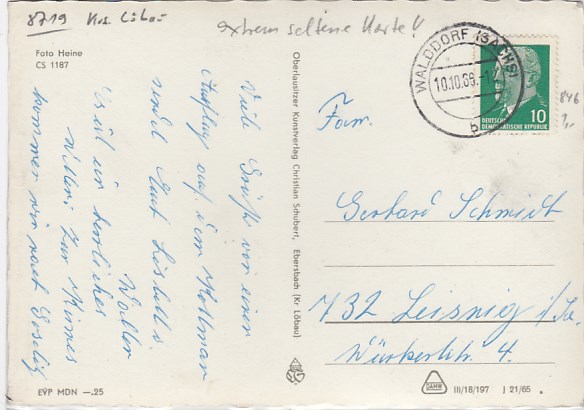 8719 Krs. Löbau
extrem seltene Karte!!
Foto Heine
CS 1187
Viele Grüße von einer
Ausflug auf dem Kottmar
und
Es ist ein herrliches
Wetter. Zur Kirmes
kommen wir nach
EVP MDN —.25
Oberlausitzer Kunstverlag Christian Schubert, Ebersbach (Kr Löbau)
WALDDORF (SACHS)
10.10.66.-1
b
DEUTSCHE
DEMOKRATISCHE REPUBLIK
10
846
1,-
Fam.
Gerhard Schmidt
732 Leisnig i/Sa.
4.
DAHW
III/18/197 J 21/65